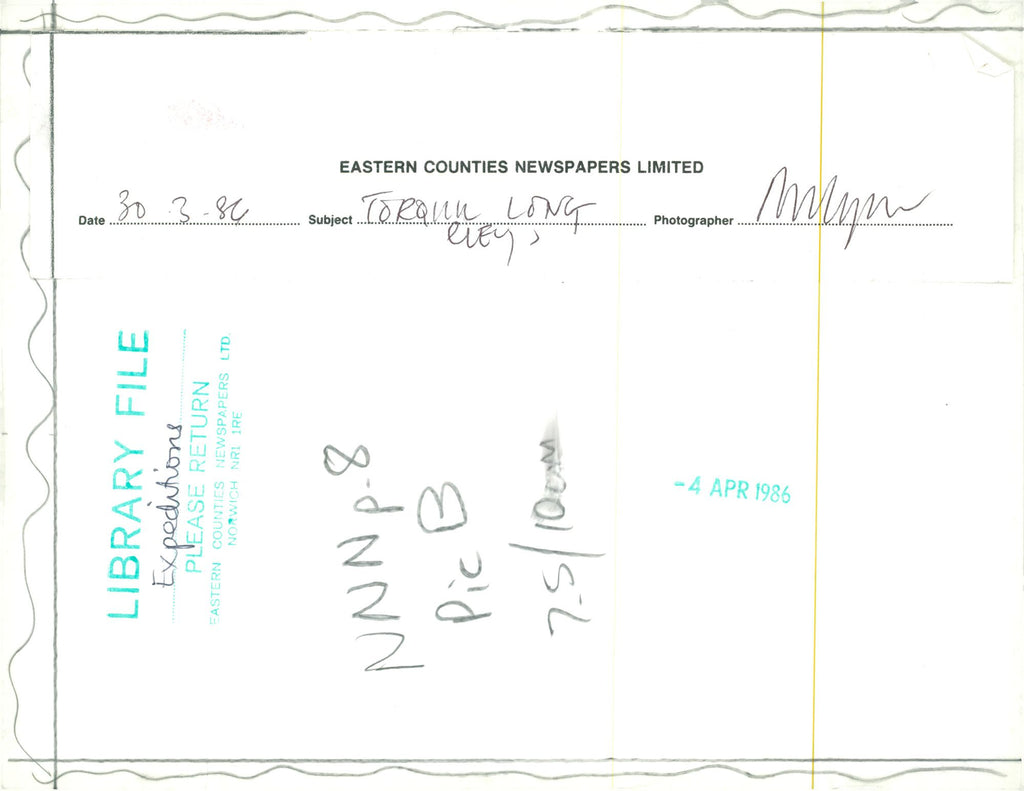 EASTERN COUNTIES NEWSPAPERS LIMITED
Date 30-3-86 Subject TORQUIL LONG Photographer
LIBRARY FILE
Expeditions
PLEASE RETURN
EASTERN COUNTIES NEWSPAPERS LTD.
NORWICH NR1 1RE
NNN P-8
Pic B
7-5/10cm
-4 APR 1986